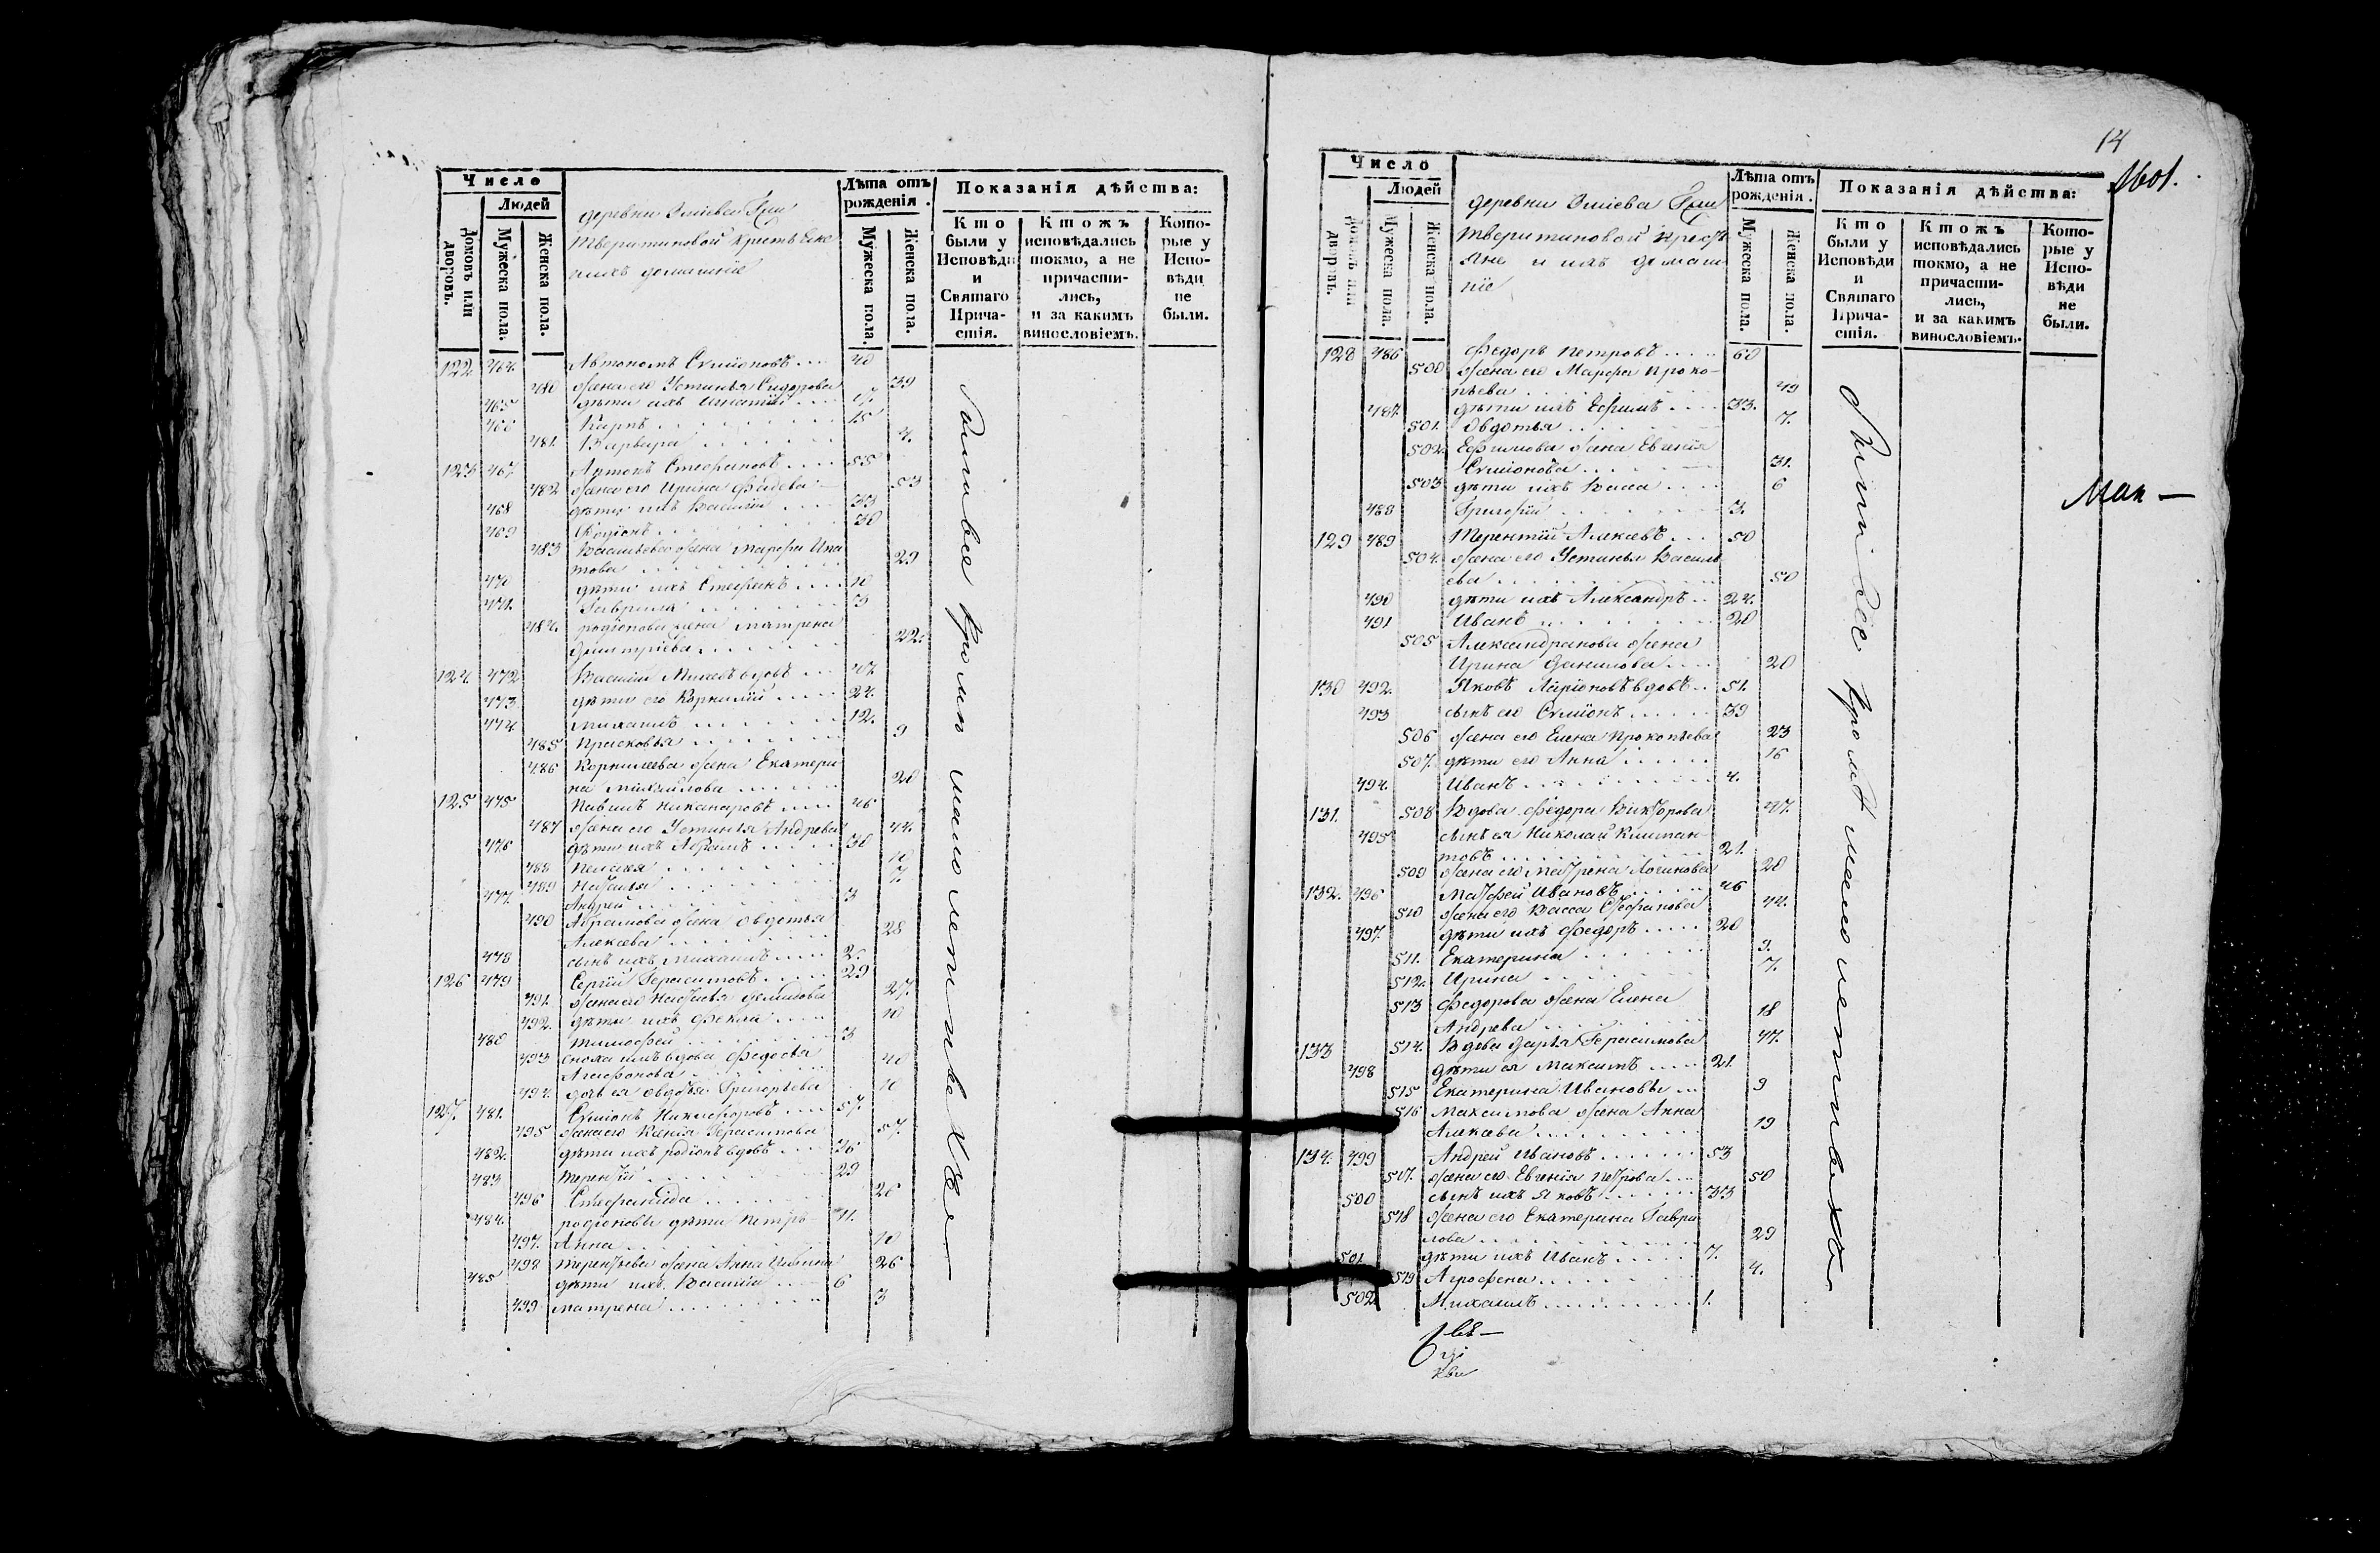 Число
Людей
Домовъ или дворовъ.
Мужеска пола.
Женска пола.
деревни Змiева
Тверитиновой крестьяне
ихъ домашнiе
Лѣта отъ рожденiя.
Мужеска пола.
Женска пола.
Показанiя дѣйства:
Кто были у Исповѣди и Святаго Причастiя.
Ктожъ исповѣдались токмо, а не причастились, и за какимъ винословiемъ.
Которые у Исповѣди не были.
122 464. Автономъ Семiоновъ 40
480 жена его Устинья Сидорова 39
465 дѣти ихъ Игнатiй 17.
466 Карпъ 15
481. Варвара 4.
123 467. Антонъ Стефановъ 55
482 жена его Ирина Фадева 53
468 дѣти ихъ Василiй 33
469 Родiонъ 30
483 Васильева жена Марфа Ипатова 29
470 дѣти ихъ Стефанъ 10
471. Гаврила 3
484. родiонова жена Матрена
Дмитрiева 22.
124. 472 Василiй Михеевъ вдовъ 47.
473 дѣти его Корнилiй 24.
474. Михаилъ 12.
485 Прасковья 9
486 Корнилева жена Екатери
на Михайлова 20
125 475 Павелъ Никаноровъ 46
487 жена его Устинья Андрева 44.
476 дѣти ихъ Абрамъ 30
488 Пелагея 10
489 Наталья 7.
477. Андрей 3
490 Абрамова жена Овдотья
Алексева 28
478 сынъ ихъ Михаилъ 2.
126 479 Сергiй Герасимовъ 29
491. жена его Наталья Демидова 27.
492. дѣти ихъ Фекла 10
480 Тимофей 3
493 сноха ихъ вдова Федосья
Агафонова 40
494. дочь ея Овдотья Григорьева 10
127. 481. Семiонъ Никифоровъ 57.
495 жена его Ксенiя Герасимова 57.
482. дѣти ихъ родiонъ вдовъ 36
483 Терентiй 29
496 Стефанида 26
484. родiоновы дѣти Петръ 11.
497. Анна 10
498 Терентьева жена Анна Иванова 26
485 дѣти ихъ Василiй 6
499 Матрена 3
всѣ кроми малолетнихъ
14
1601.
Число
Людей
Домовъ или дворовъ.
Мужеска пола.
Женска пола.
деревни Змiева
Тверитиновой кресть
яне и ихъ домаш
нiе
Лѣта отъ рожденiя.
Мужеска пола.
Женска пола.
Показанiя дѣйства:
Кто были у Исповѣди и Святаго Причастiя.
Ктожъ исповѣдались токмо, а не причастились, и за какимъ винословiемъ.
Которые у Исповѣди не были.
128 486 Федоръ Петровъ 60
500 жена его Марфа Проко-
пьева 49
487. дѣти ихъ Ефимъ 33.
501. Овдотья 7.
502. Ефимова жена Евгенiя
Семiонова 31.
503 дѣти ихъ Васса 6
488 Григорiй 3.
129 489 Терентiй Алексевъ 50
504. жена его Устинья Василь
ева 50
490 дѣти ихъ Александръ 24.
491 Иванъ 20
505 Александрова жена
Ирина Данилова 20
130 492. Яковъ Ларiоновъ вдовъ 51.
493 сынъ его Семiонъ 39
506 жена его Елена Прокопьева 23
507. дѣти его Анна 16
494. Иванъ 4.
131. 508 Вдова Федора Викторова 47.
495 сынъ ея Николай Климан
товъ 21.
509 жена его Матрена Логинова 20
132. 496 Матфей Ивановъ 46
510 жена его Васса Стефанова 44.
497. дѣти ихъ Федоръ 20
511. Екатерина 9.
512. Ирина 7.
513 Федорова жена Елена
Андрева 18
133 514. Вдова Дарья Герасимова 47.
498 дѣти ея Максимъ 21.
515 Екатерина Ивановы 9
516 Максимова жена Анна
Алексева 19
134. 499 Андрей Ивановъ 53
517. жена его Евгенiя Петрова 50
500 сынъ ихъ Яковъ 33
518 жена его Екатерина Гаври
лова 29
501. дѣти ихъ Иванъ 7.
519 Агрофена 4.
502. Михаилъ 1.
всѣ кромѣ малолетнихъ